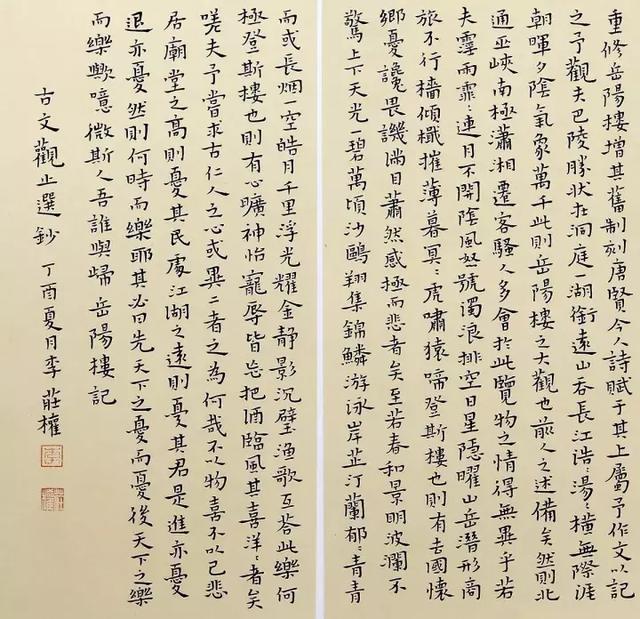 重修岳陽樓增其舊制刻唐賢今人詩賦于其上屬予作文以記
之予觀夫巴陵勝狀在洞庭一湖銜遠山吞長江浩:湯:橫無際涯
朝暉夕陰氣象萬千此則岳陽樓之大觀也前人之述備矣然則北
通巫峽南極瀟湘遷客騷人多會於此覽物之情得無異乎若
夫霪雨霏:連月不開陰風怒號濁浪排空日星隱曜山岳潛形商
旅不行檣傾檝摧薄暮冥:虎嘯猿啼登斯樓也則有去國懷
鄉憂讒畏譏滿目蕭然感極而悲者矣至若春和景明波瀾不
驚上下天光一碧萬頃沙鷗翔集錦鱗游泳岸芷汀蘭郁:青青
而或長烟一空皓月千里浮光耀金靜影沉璧漁歌互荅此樂何
極登斯樓也則有心曠神怡寵辱皆忘把酒臨風其喜洋:者矣
嗟夫予嘗求古仁人之心或異二者之為何哉不以物喜不以己悲
居廟堂之高則憂其民處江湖之遠則憂其君是進亦憂
退亦憂然則何時而樂耶其必曰先天下之憂而憂後天下之樂
而樂歟噫微斯人吾誰與歸岳陽樓記
古文觀止選鈔 丁酉夏月李莊權